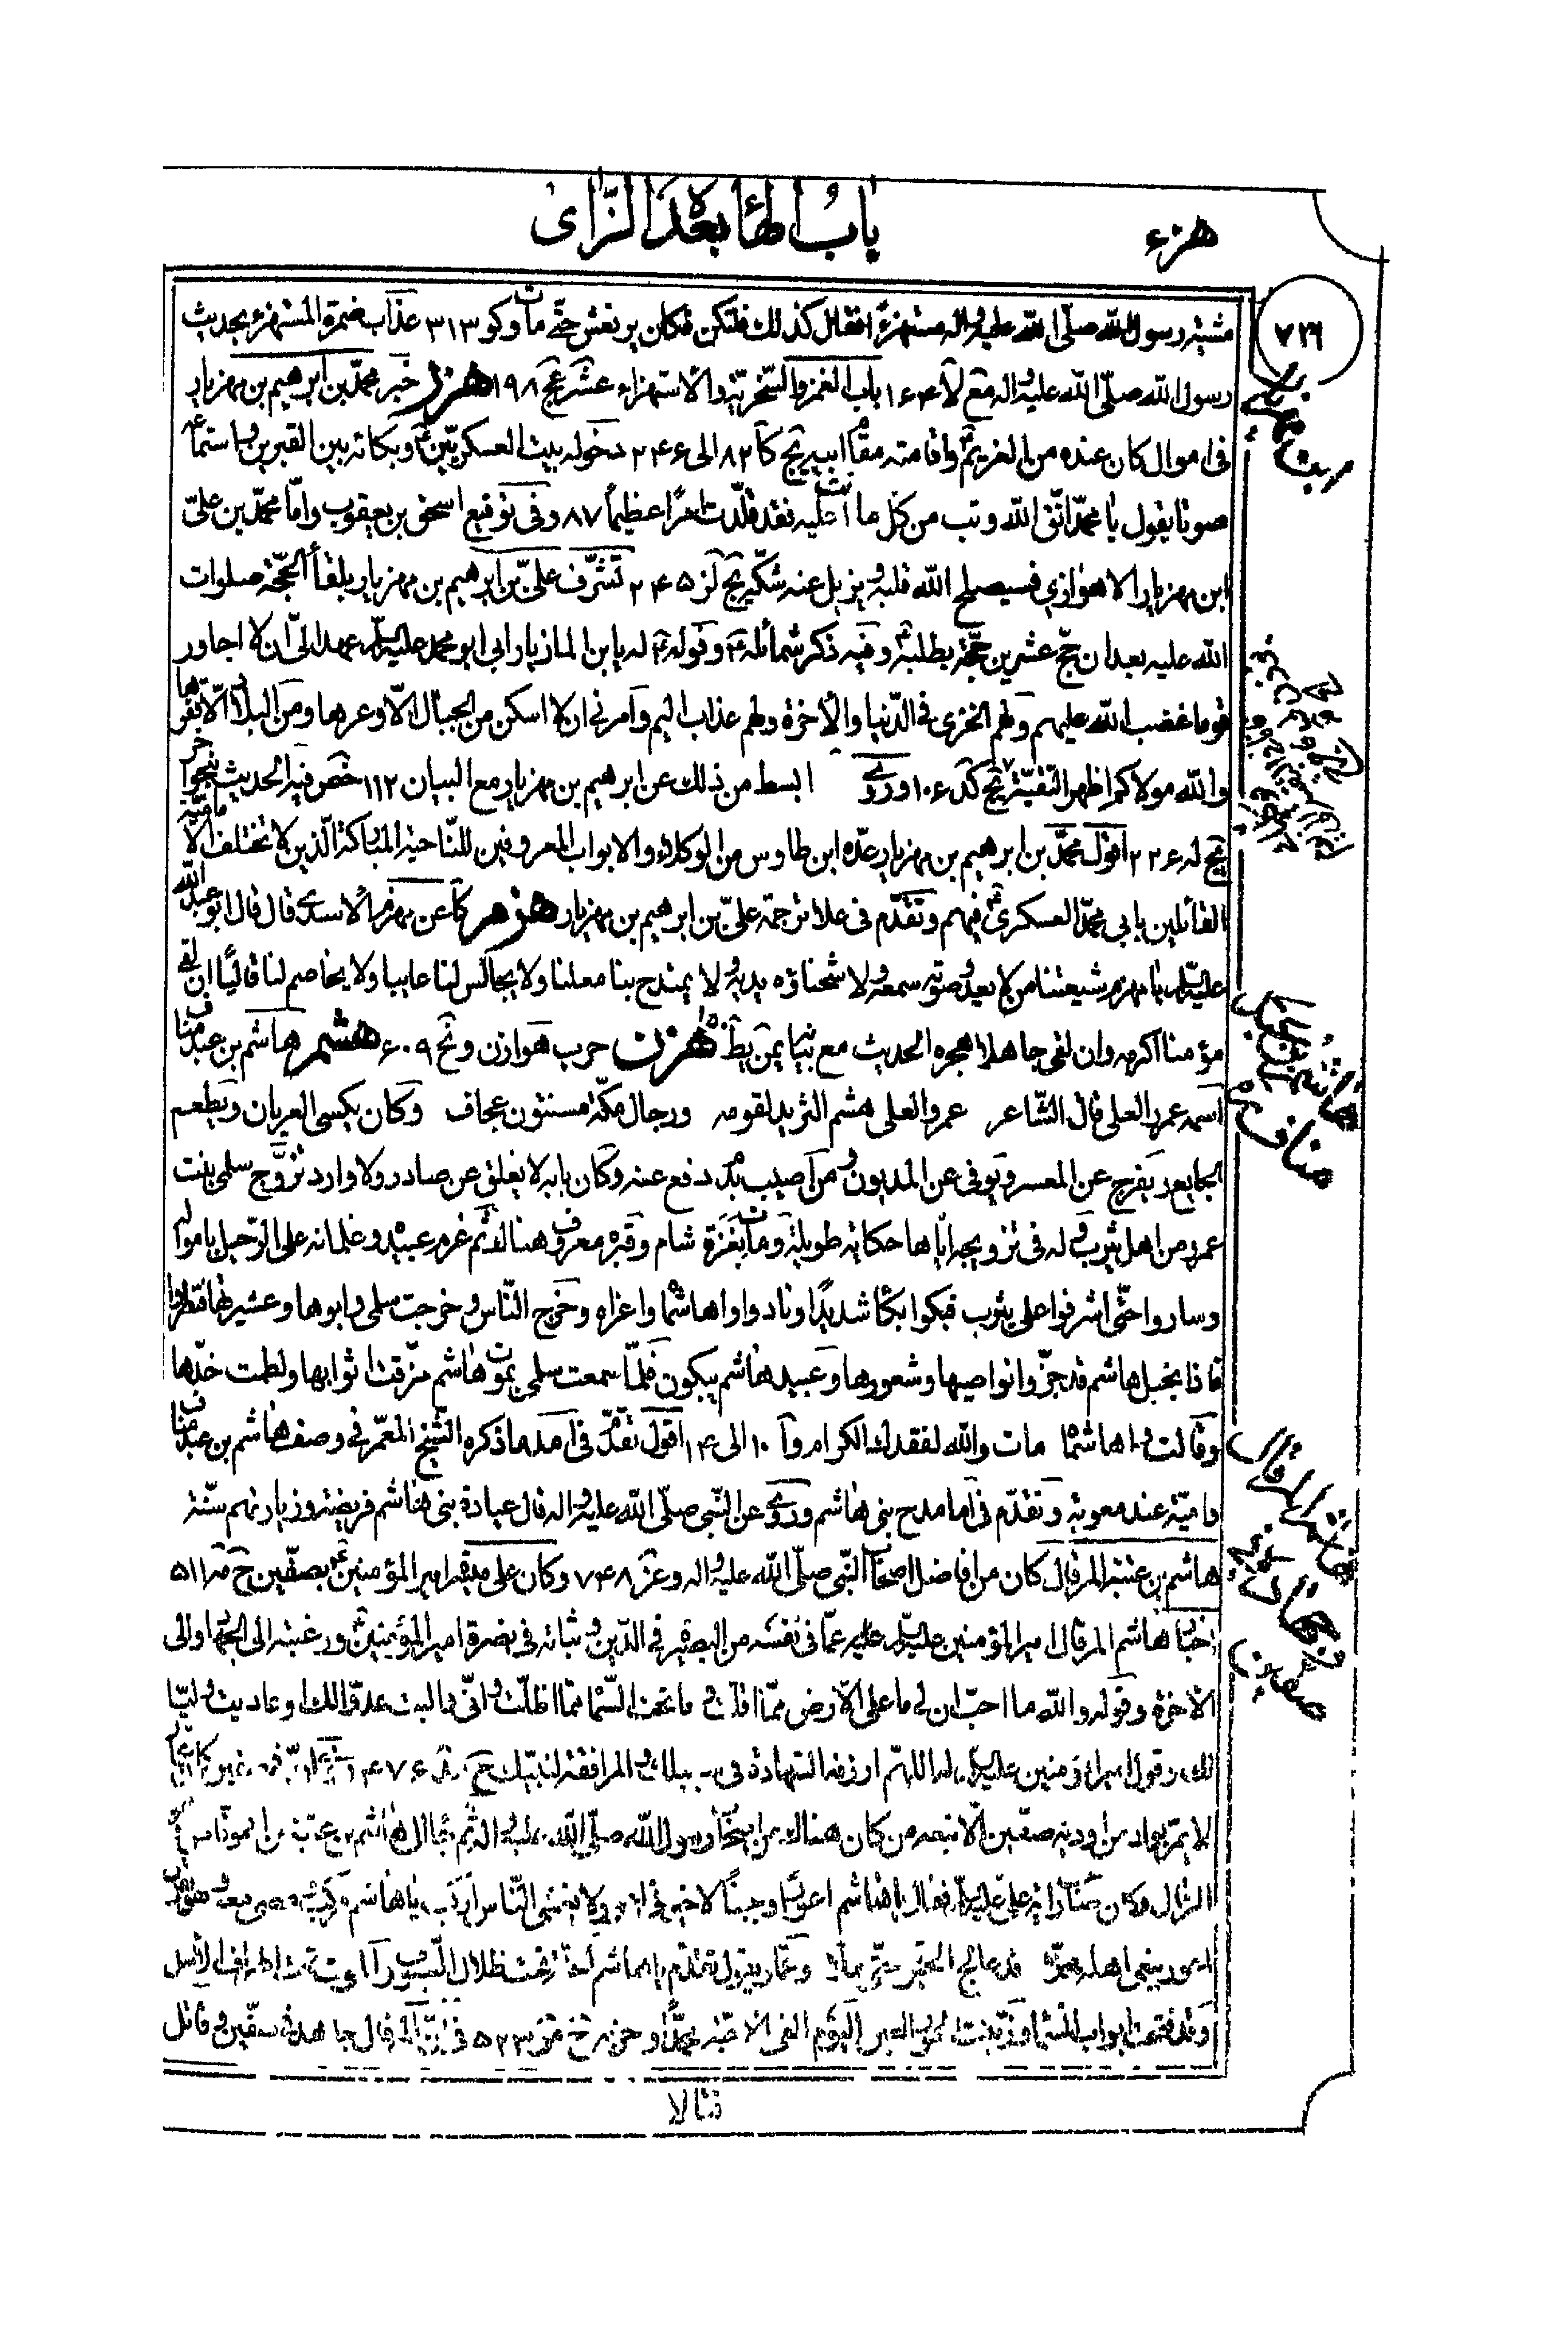 هزء
باب الهاء بعده الزاى
٧١٦
مشيته رسول الله صلّى الله عليه واله مستهزءًا فقال كذلك فلتكن فكان يرتعش حتّى مات وكو ٣١٣ عذاب ضمرة المستهزء بحديث
رسول الله صلّى الله عليه واله مع لآ ١٦٤ باب الغمز والسّخريّة والاستهزاء عشر عج ١٩٨ هزر خبر محمّد بن ابرهيم بن مهزيار
فى اموال كان عنده من الغريم واقامته مقام ابيه يج كا ٨٢ الى ٢٤٦ دخوله بيت العسكريّين وبكائه بين القبرين واستماع
صوتا يقول يا محمّد اتّق الله وتب من كل ما انت عليه فقد قلّدت امرًا عظيمًا ٨٧ وفى توقيع اسحق بن يعقوب وامّا محمّد بن علىّ
ابن مهزيار الاهوازي فسيصلح الله قلبه ويزيل عنه شكّه يج لز ٢٤٥ تشرّف علىّ بن ابرهيم بن مهزيار بلقاء الحجّة صلوات
الله عليه بعد ان حجّ عشرين حجّة يطلبه وفيه ذكر شمائله وقوله له يا بن المازيار ابي ابو محمد عليه السلام عهد الىّ ان لا اجاور
قوما غضب الله عليهم ولهم الخزى فى الدّنيا والاخرة ولهم عذاب اليم وامرنى ان لا اسكن من الجبال الّا وعرها ومن البلاد الّا قفرها
والله مولاكم اظهر التقيّة يج كد ١٠٦ وروى ابسط من ذلك عن ابرهيم بن مهزيار مع البيان ١١٢ خص فيه الحديث بنحو اخر
يج له ٢٢٦ اقول محمّد بن ابرهيم بن مهزيار عدّه ابن طاوس من الوكلاء والابواب المعروفين للنّاحية المباكة الّذين لا تختلف الاماميّة
القائلين بابي محمّد العسكرى فيهم وتقدّم فى علا ترجمة علىّ بن ابرهيم بن مهزيار هزمر كا عن مهزم الاسدى قال قال ابو عبد الله
عليه السلام يا مهزم شيعتنا من لا يعدو صوته سمعه ولا شحناؤه يديه ولا يمتدح بنا معلنا ولا يجالس لنا عايبا ولا يخاصم لنا قاليًا ان لقى
مؤمنا اكرمه وان لقى جاهلا هجره الحديث مع بيا يمن يط هزن حرب هوازن ونح ٦٠٩ هشم هاشم بن عبد مناف
اسمه عمرو العلى قال الشّاعر عمرو العلى هشم الثريد لقومه ورجال مكّة مسنتون عجاف وكان يكسى العريان ويطعم
الجايع ويفرج عن المعسر ويوفى عن المديون ومن اصيب بدم دفع عنه وكان بابه لا يغلق عن صادر ولا وارد تزوّج سلمى بنت
عمرو من اهل يثرب وله فى تزويجه ايّاها حكاية طويلة ومات بغزة شام وقبره معروف هناك ثم عزم عبيده وغلمانه على الرّحيل باموالهم
وساروا حتّى اشرفوا على يثرب فبكوا بكاء شديدًا ونادوا واهاشماه واعزاه وخرج النّاس وخرجت سلمى وابوها وعشيرتها فنظروا
فاذا بخيل هاشم قد جزّوا نواصيها وشعورها وعبيد هاشم يبكون فلمّا سمعت سلمى بموت هاشم مزّقت اثوابها ولطمت خدّها
وقالت واهاشماه مات والله لفقدك الكرام وا ١٠ الى ١٤ اقول تقدّم فى امد ما ذكره الشّيخ المعمّر فى وصف هاشم بن عبد مناف
واميّة عند معوية وتقدّم فى اما مدح بنى هاشم وروى عن النّبى صلّى الله عليه واله قال عيادة بنى هاشم فريضة وزيارتهم سنّة
هاشم بن عتبة المرقال كان من افاضل اصحاب النّبى صلّى الله عليه واله وعز ٧٤٨ وكان على ميسرة امير المؤمنين بصفّين ح مه ٥١١
اخبار هاشم المرقال امير المؤمنين عليه السلام عمّا فى نفسه من البصيرة فى الدّين وثباته فى نصرة امير المؤمنين ورغبته الى الجهاد والى
الاخرة وقوله والله ما احبّ ان لى ما على الارض ممّا اقلّت وما تحت السّماء ممّا اظلّت وانّى واليت عدوّا لك او عاديت وليّا
لك وقول امير المؤمنين عليه السلام له اللهمّ ارزقه الشهادة فى سبيلك والمرافقة لنبيّك
لا يمرّ بواد من اودية صفّين الّا تبعه من كان هناك من اصحاب رسول الله صلّى الله عليه واله ثم جاء الى هاشم بن عتبة
فقال يا هاشم اعورًا وجبنًا لا خير فى اعور لا يغشى النّاس اركب يا هاشم فركب ومضى معه وهو يقول
اعور يبغى اهله محلّا قد عالج الحيوة حتّى ملّا وعمّار يقول تقدّم يا هاشم الجنّة تحت ظلال السّيوف والموت تحت اطراف الاسل
وقد فتحت ابواب السّماء وزيّنت الحور العين اليوم القى الاحبّة محمّدًا وحزبه ٥٢٣ المرقال جاهد فى صفّين وقاتل
قتالا
ابن مهزيار
هاشم بن عبد
مناف
هاشم المرقال
صفّين